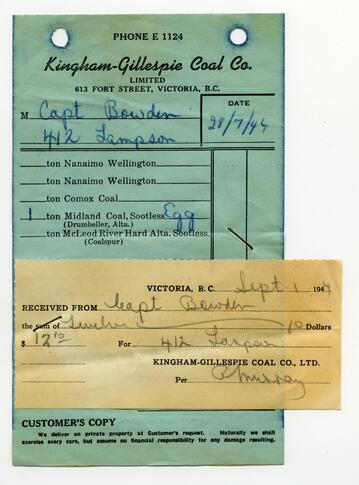 PHONE E 1124
Kingham-Gillespie Coal Co.
LIMITED
613 FORT STREET, VICTORIA, B.C.
M Capt Bowden
412 Lampson
DATE
28/7/44
ton Nanaimo Wellington
ton Nanaimo Wellington
ton Comox Coal
1 ton Midland Coal, Sootless Egg
(Drumheller, Alta.)
ton McLeod River Hard Alta. Sootless
(Coalspur)
VICTORIA, B. C. Sept 1 194
RECEIVED FROM Capt Bowden
the sum of Twelve 10 Dollars
$ 12 10 For 412 Lampson
KINGHAM-GILLESPIE COAL CO., LTD.
Per P Murray
CUSTOMER'S COPY
We deliver on private property at Customer's request. Naturally we shall
exercise every care, but assume no financial responsibility for any damage resulting.